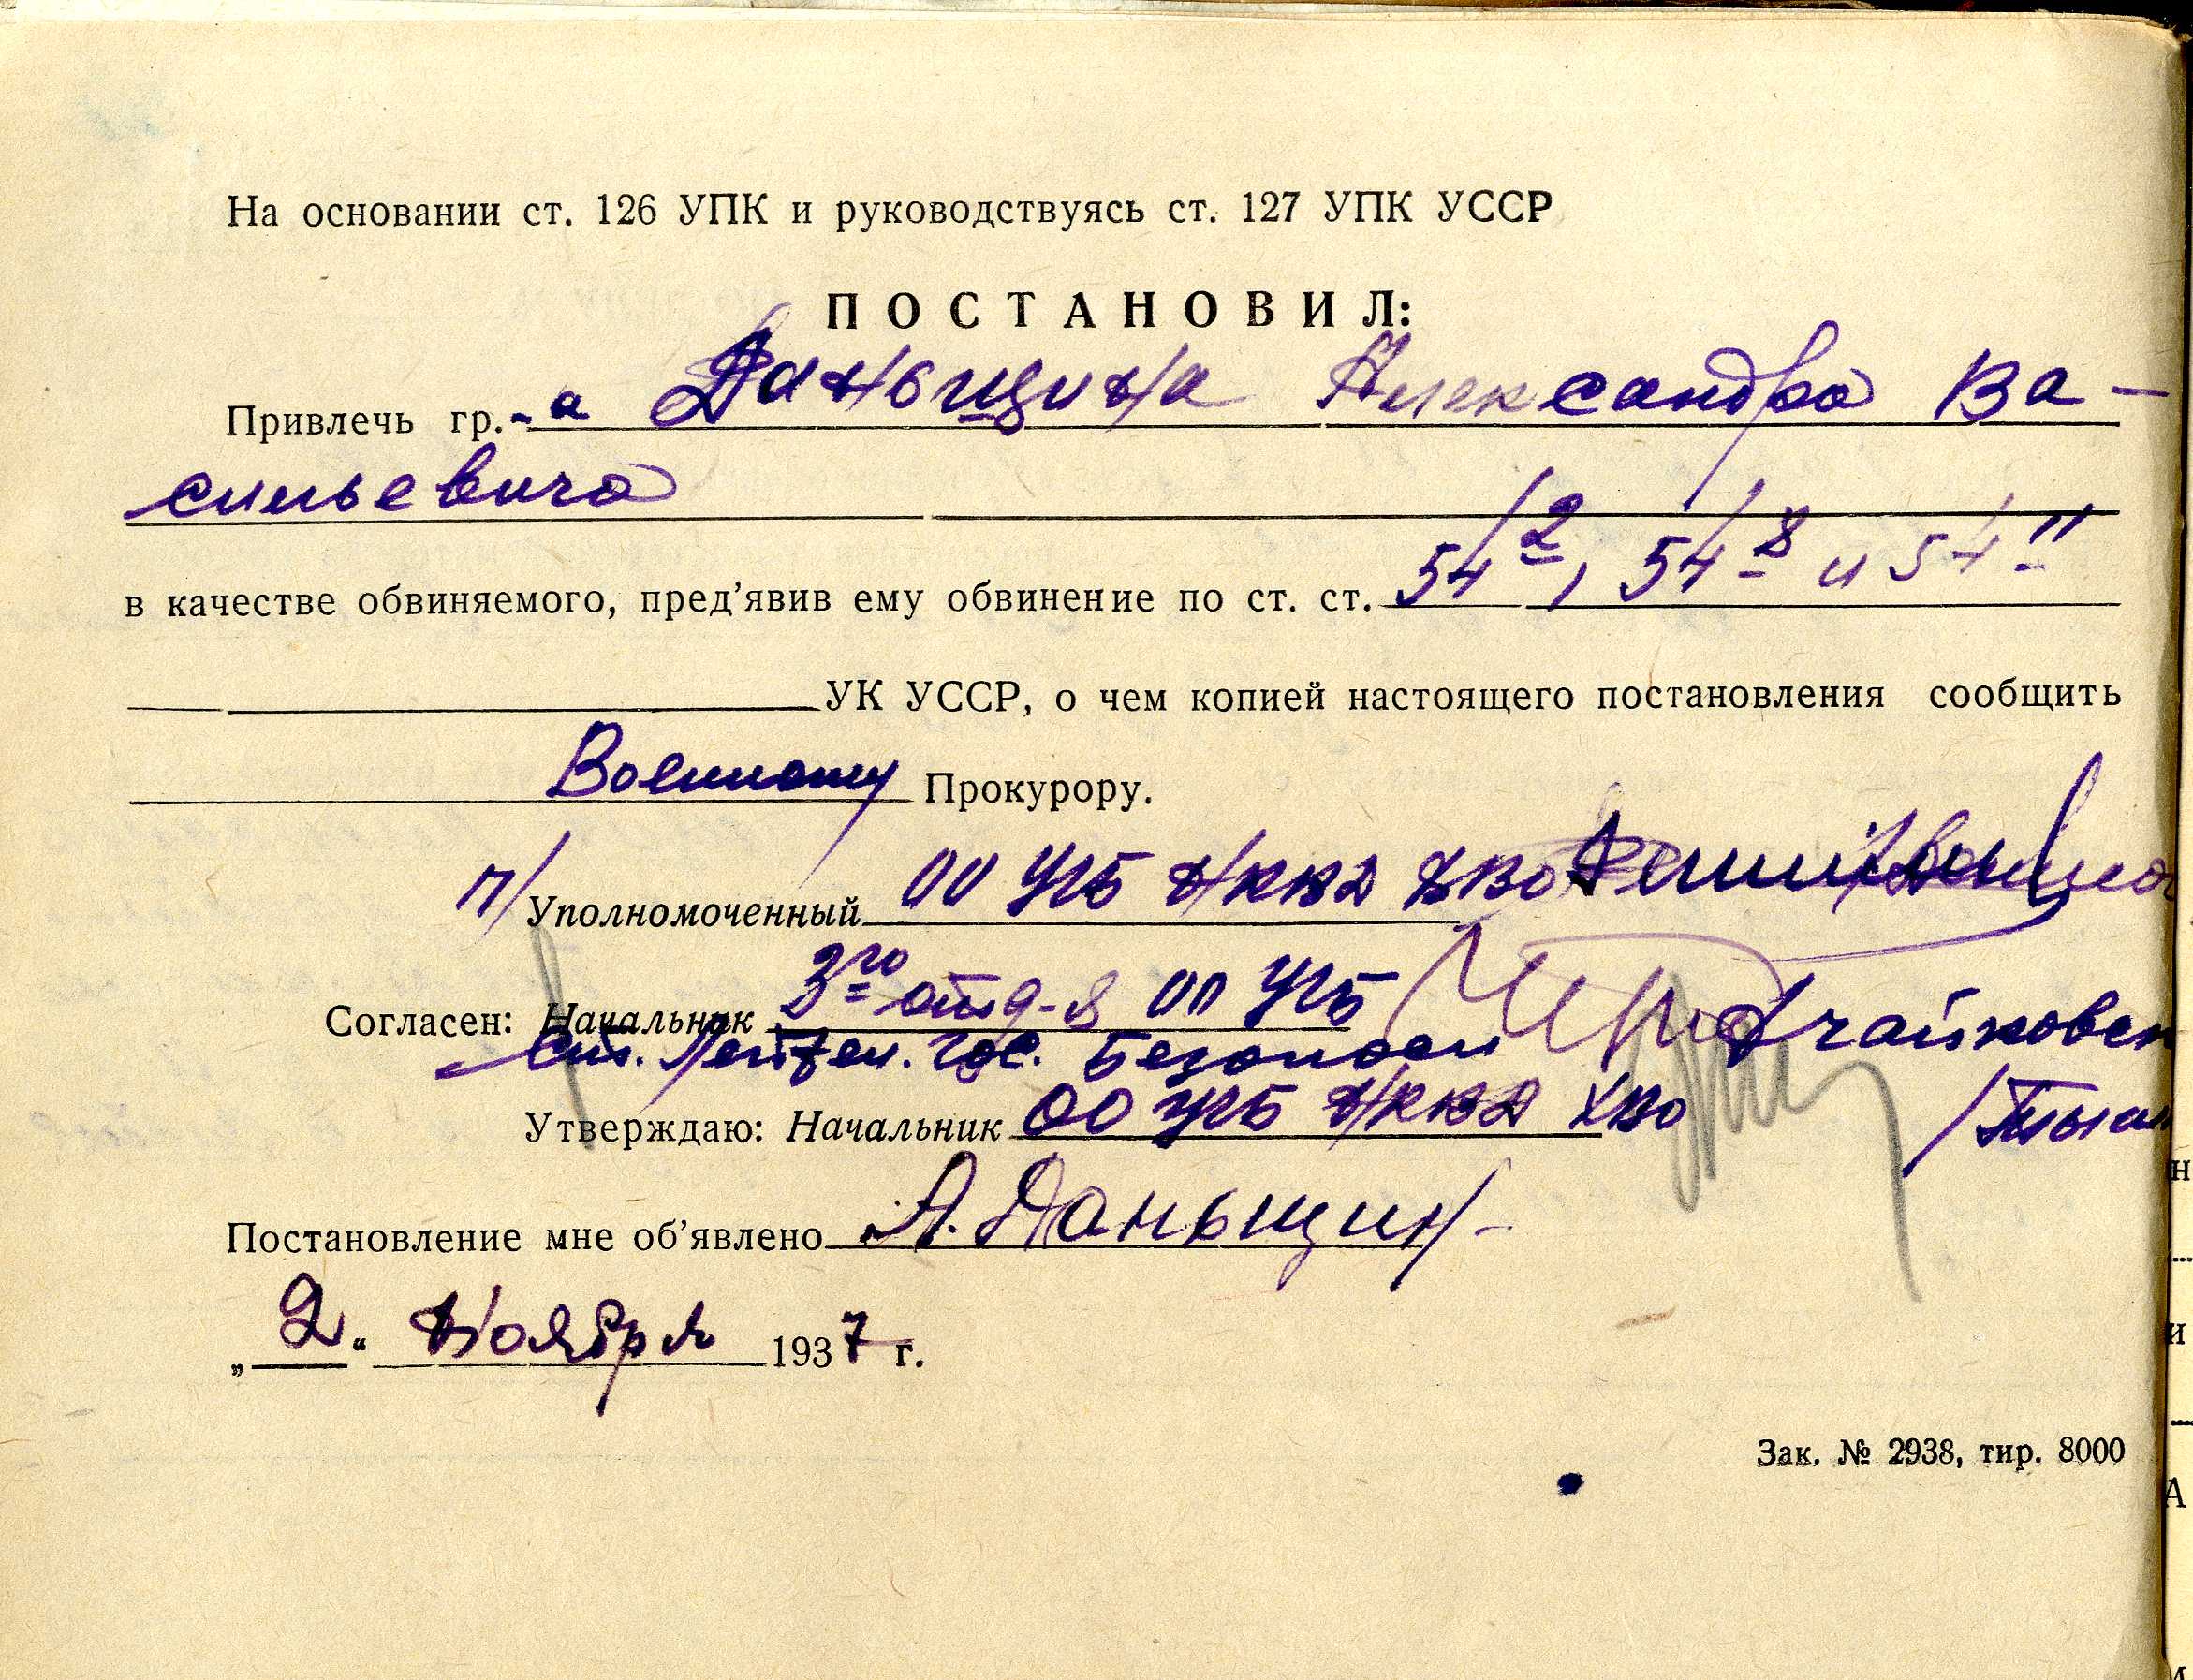 На основании ст. 126 УПК и руководствуясь ст. 127 УПК УССР
ПОСТАНОВИЛ:
Привлечь гр.-а Даньщина Александра Ва-
сильевича
в качестве обвиняемого, пред’явив ему обвинение по ст. ст. 54-2, 54-8 и 54-11
УК УССР, о чем копией настоящего постановления сообщить
Военному Прокурору.
П/Уполномоченный ОО УГБ НКВД ХВО
Согласен: Начальник 3го отд-я ОО УГБ
Ст. Лейтен. Гос. Безопасн Чайковск
Утверждаю: Начальник ОО УГБ НКВД ХВО
Постановление мне об’явлено А. Даньщин
„2“ Ноября 1937 г.
Зак. № 2938, тир. 8000